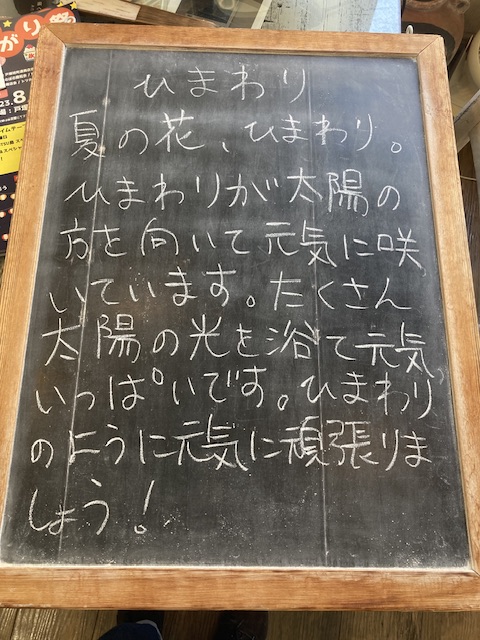 ひまわり
夏の花、ひまわり。
ひまわりが太陽の
方を向いて元気に咲
いています。たくさん
太陽の光を浴て元気
いっぱいです。ひまわり
のように元気に頑張りま
しょう!
がり
23.8